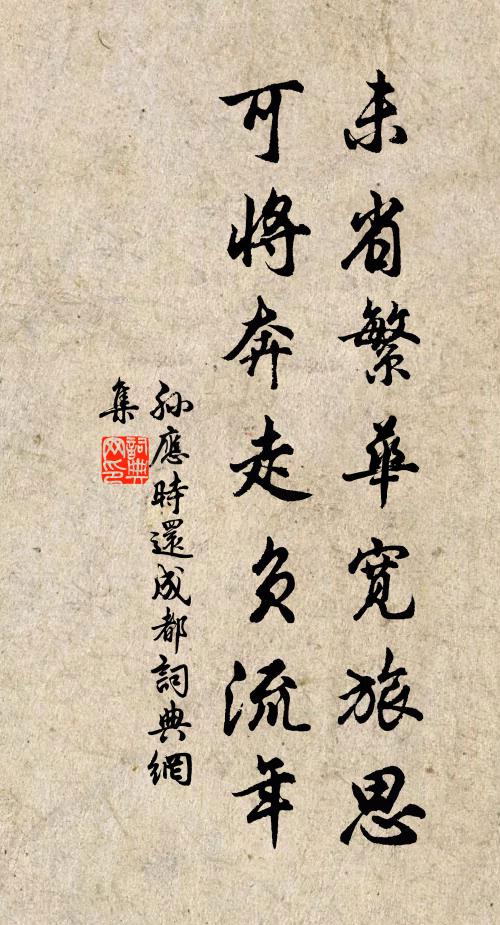 未省繁華寬旅思
可將奔走負流年
孫應時還成都詞典網
集
詞典
網印